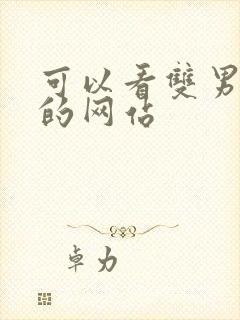 可以看雙男
的网站
卓力